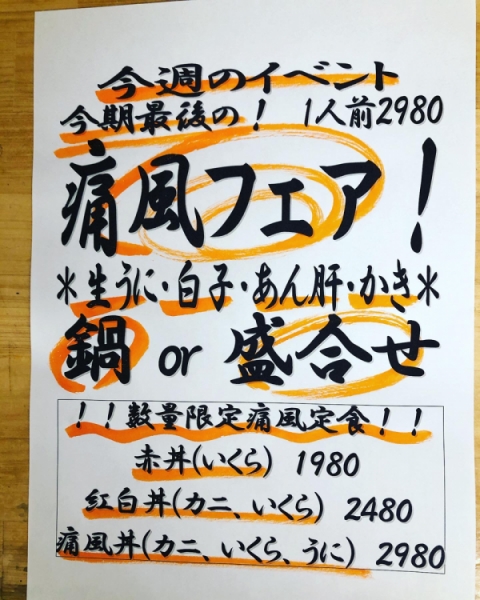 今週のイベント
今期最後の! 1人前2980
痛風フェア!
*生うに・白子・あん肝・かき*
鍋 or 盛合せ
!!数量限定痛風定食!!
赤丼(いくら) 1980
紅白丼(カニ、いくら) 2480
痛風丼(カニ、いくら、うに) 2980